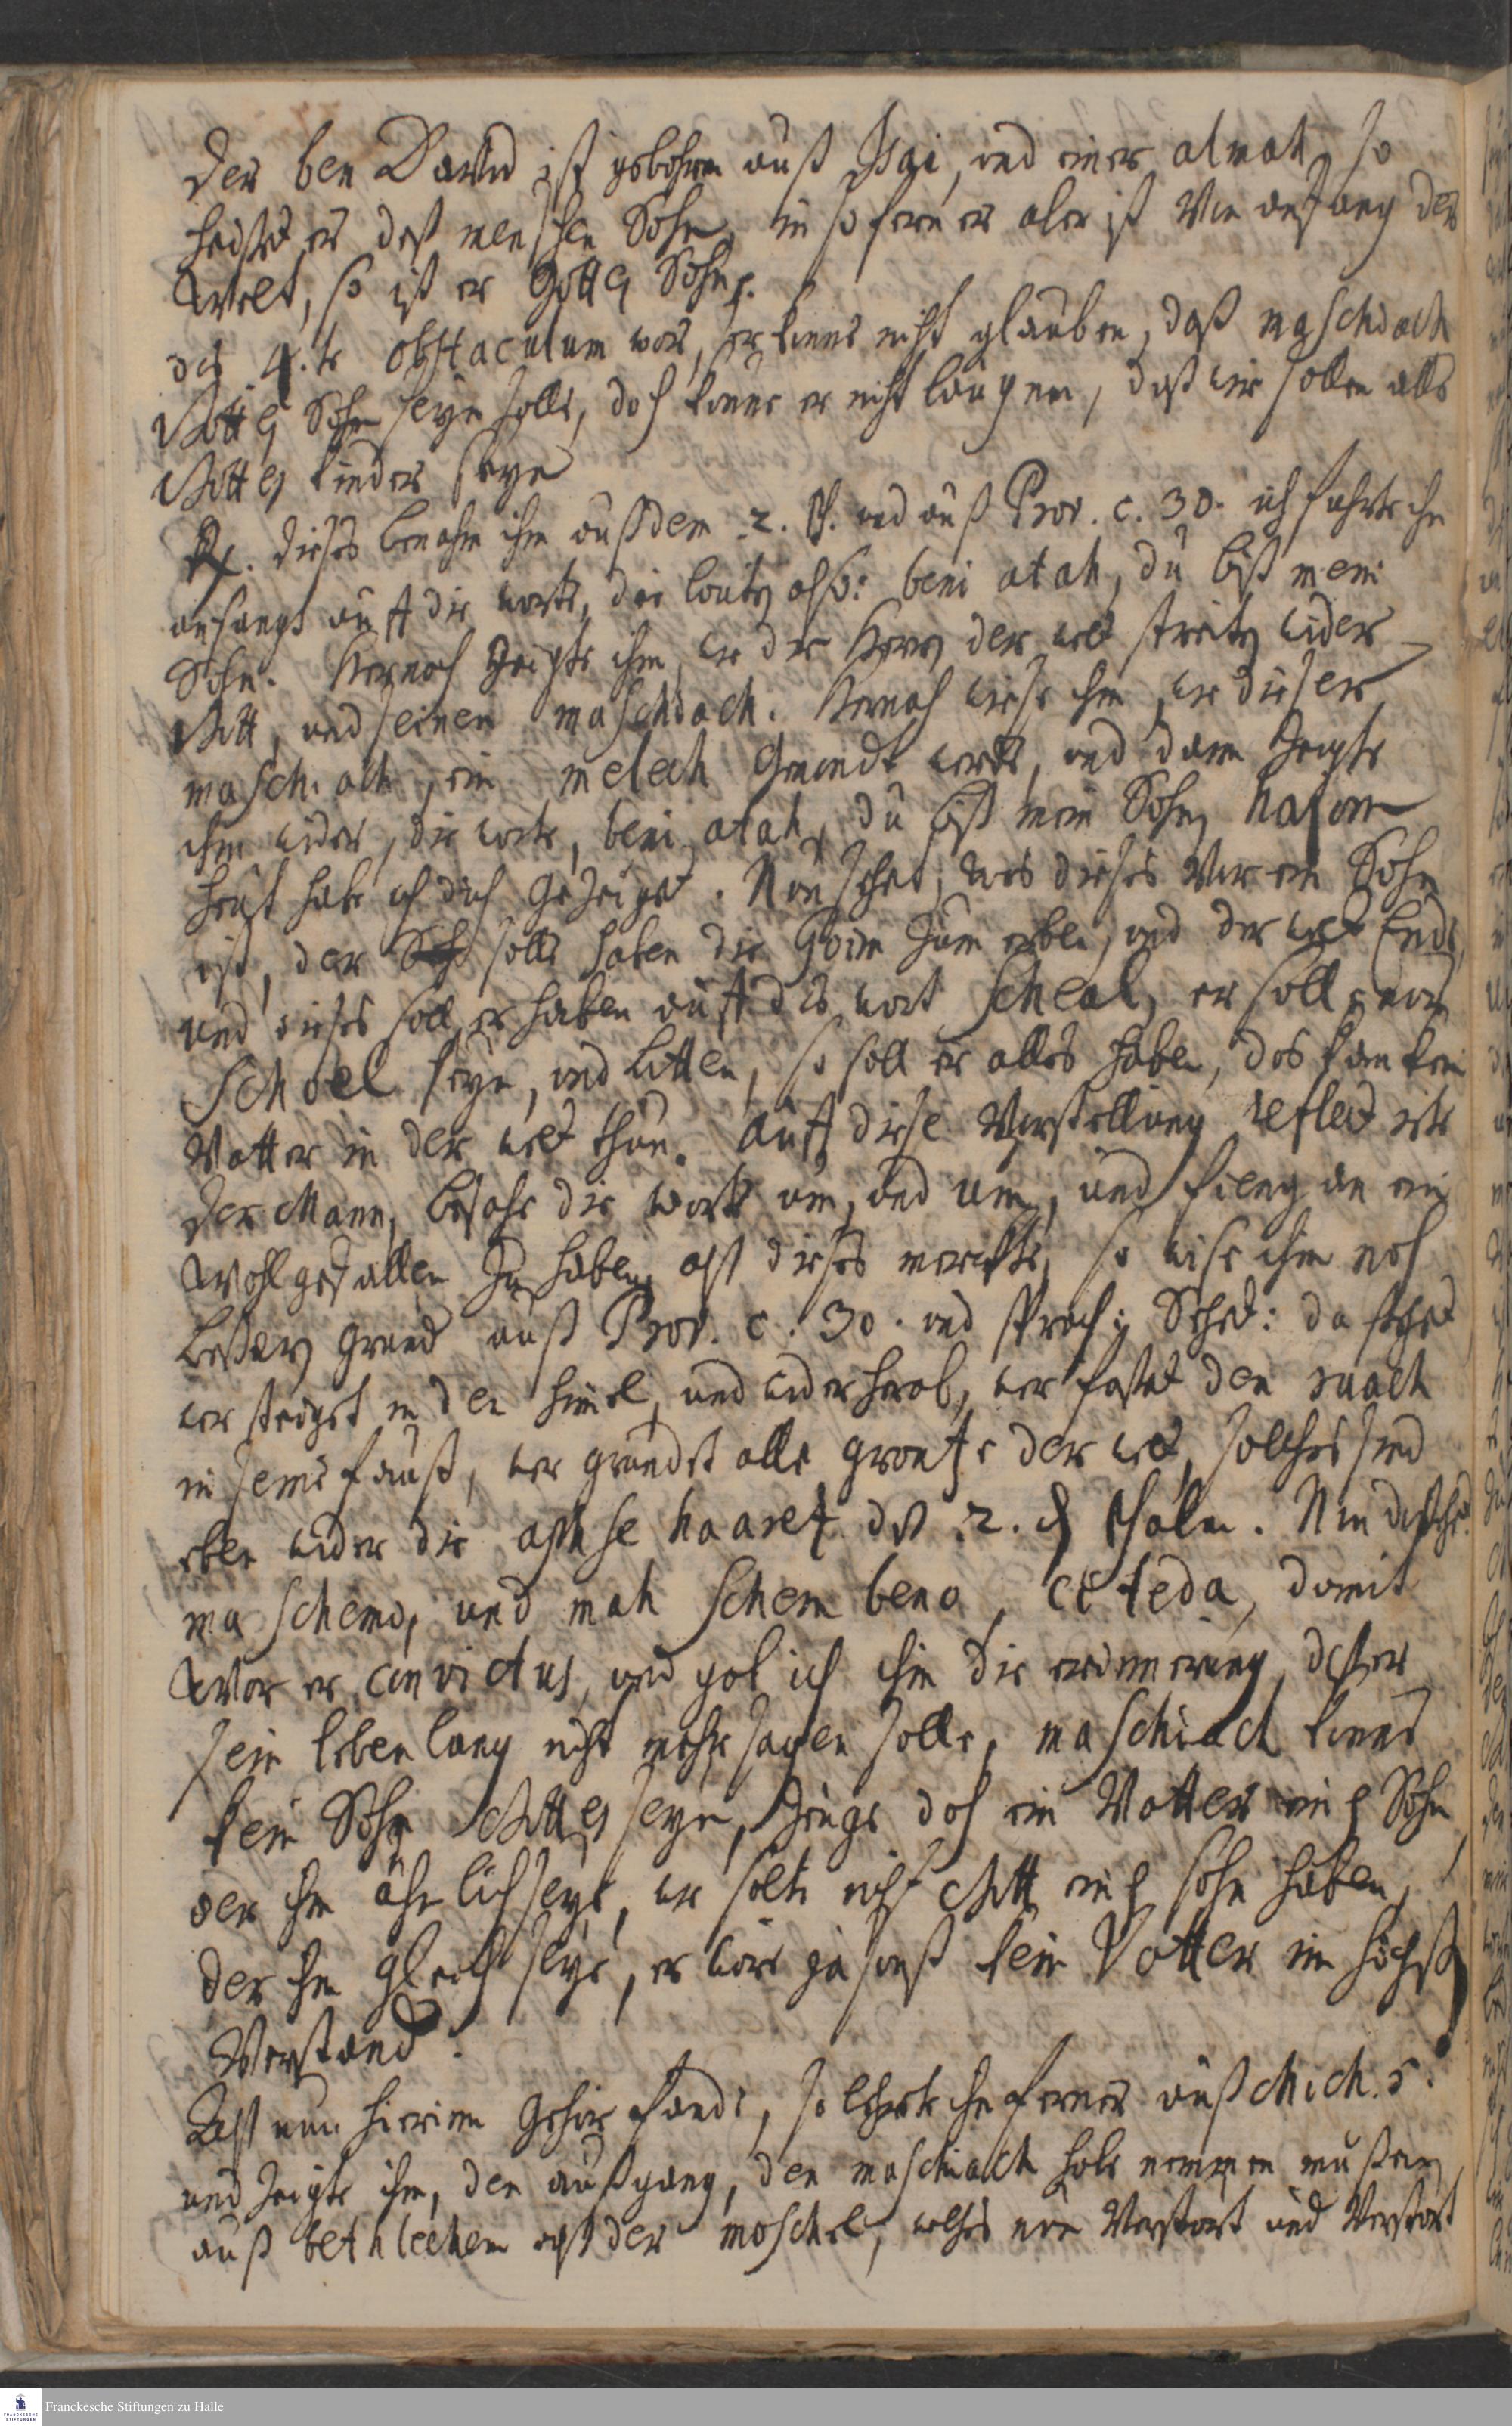 der ben David ist gebohren auß Isai, und einer almah, so
heißet er deß menschen Sohn, in so fern er aber ist von anfang der
Welt, so ist er Gottes Sohn.
das 4.te obstaculum war, er könne nicht glauben, daß maschiach
Gottes Sohn seyn solle, doch könne er nicht läugnen, daß wir sollen alle
Gottes kinder seyn
Rx. dieses benahm ihm auß dem 2. Ps. und auß Prov. c. 30. ich führte ihn
anfangs auff die worte, die lauten also: beni atah, du bist mein
Sohn. hernach zeigte ihm, wie die Herren der welt streiten wider
Gott, und seinen maschiach. hernach wiese ihm, wie dieser
maschiach, ein melech genandt werde, und dann zeigte
ihm wider, die worte, beni atah, du bist mein Sohn, hajom
heut habe ich dich gezeiget. Nun sehet, was dieses vor ein Sohn
ist, der solle haben die Goim zum erben, und der welt Ende,
und dieses soll er haben auff das wort scheal, er soll nur
schoel seyn, und bitten, so soll er alles haben, das kan kein
Vatter in der welt thun. Auff diese Vorstellung reflectirte
der Mann, besahe die worte um, und um, und fieng an ein
Wohlgefallen zu haben, alß dieses merckte, so wise ihm noch
bessern grund auß Prov. c. 30. und sprach: Sehet: da stehet
wer steiget in den himel, und wider herab, wer fasset den ruach
in seine faust, wer gründet alle grentze der welt, solches sind
eben wider die aphse haarez deß 2. Psalm. Nun
ma schemo, und mah schem beno, ci teda, damit
War er convictus, und gab ich ihm die erinnerung, daß er
sein lebenlang nicht mehr sagen solle, maschiach könne
kein Sohn Gottes seyn, zeuge doch ein Vatter ein Sohn
der ihm ähnlich seye, wie solte nicht Gott ein sohn haben,
der ihm gleich seye, er wäre ja sonst kein Vatter im höchsten
Verstand.
Alß nun hierinn gehör fande, so lehrte ihn ferner auß Mich. 5.
und zeigte ihm, den außgang, den maschiach habe nemmen müßen
auß bethlechem alß der moschel, welches nun Verstart und Verstart